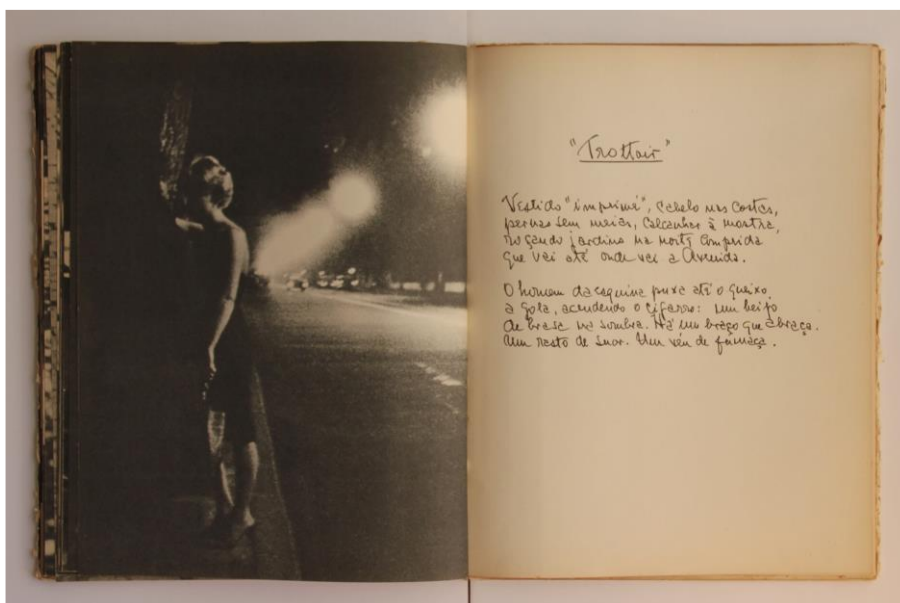 "Trottoir"
Vestido "imprimé", cabelo nas costas,
pernas sem meias, calcanhar à mostra,
jardina na noite comprida
que vai até onde vai a Avenida.
O homem da esquina puxa até o queixo
a gola, acendendo o cigarro: um beijo
de brasa na sombra. Há um braço que abraça.
Um resto de suor. Um véu de fumaça.